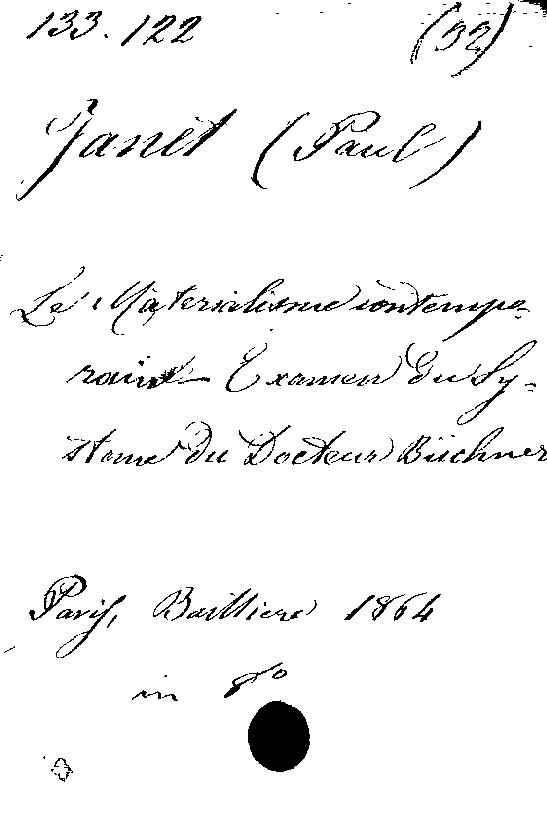 133.122 (32)
Janet (Paul)
Le Materialisme contempo-
rain Examen du Sy-
steme du Docteur Büchner
Paris, Baillière 1864
in 8º